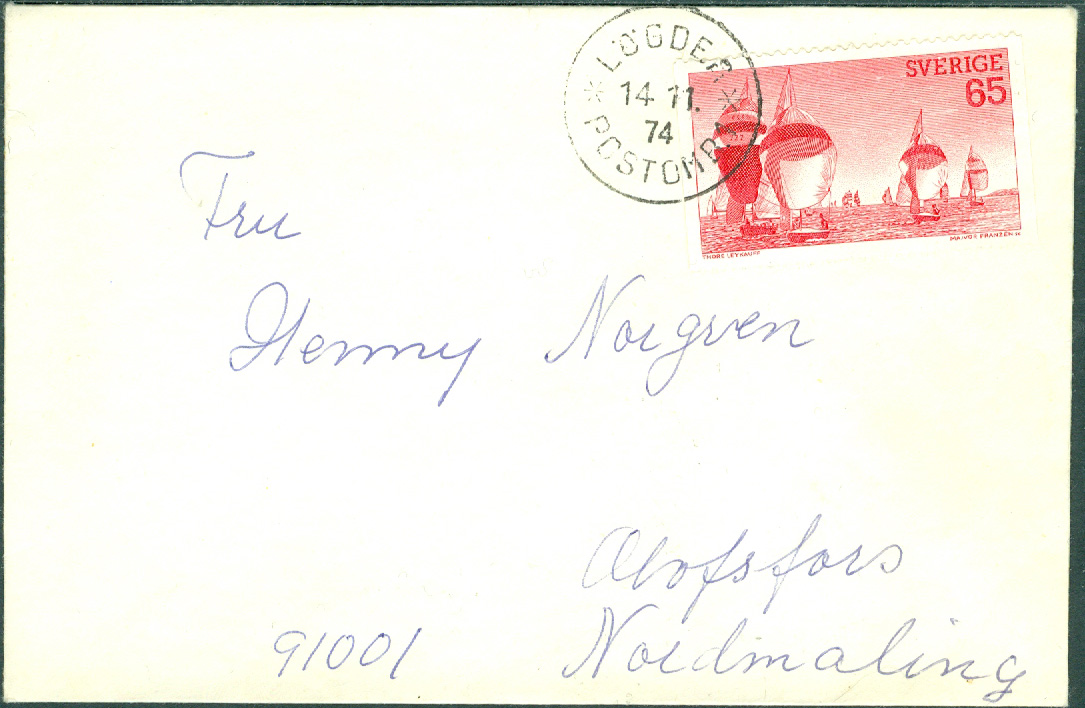 LÖGDEÅ
14 11.
74
POSTOMB
SVERIGE
65
THORE LEYKAUFF
MAJVOR FRANZÉN SC
Fru
Henny Norgren
Olofsfors
91001 Nordmaling